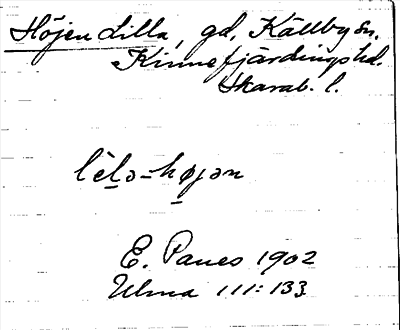 Höjen Lilla, gd, Källby sn.
Kinnefjärdings hd.
Skarab. l.
lìl̠ə-hø̠jən
E. Panes 1902
Ulma 111:133